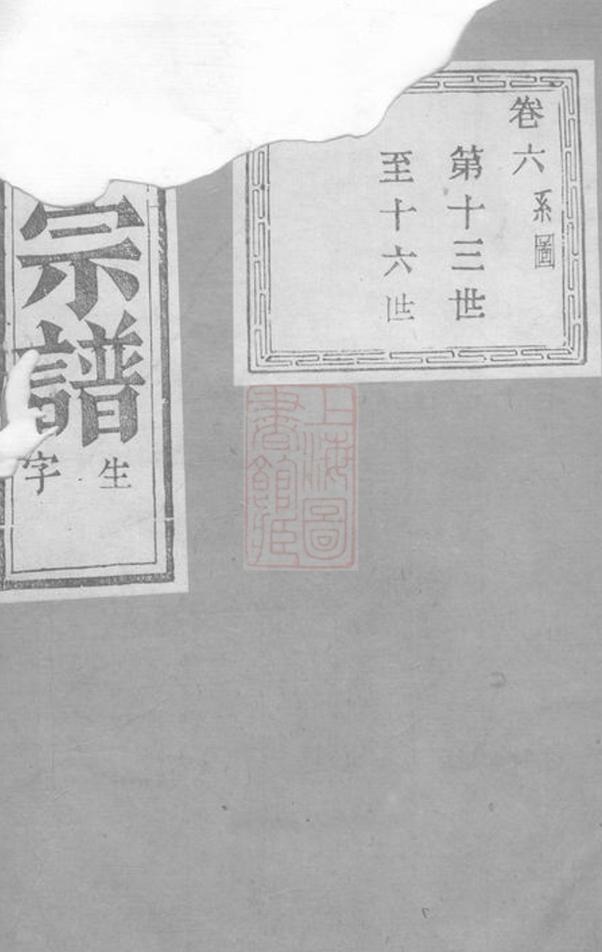 卷六系圖
第十三世
至十六世
宗譜
生字
上海圖書館藏